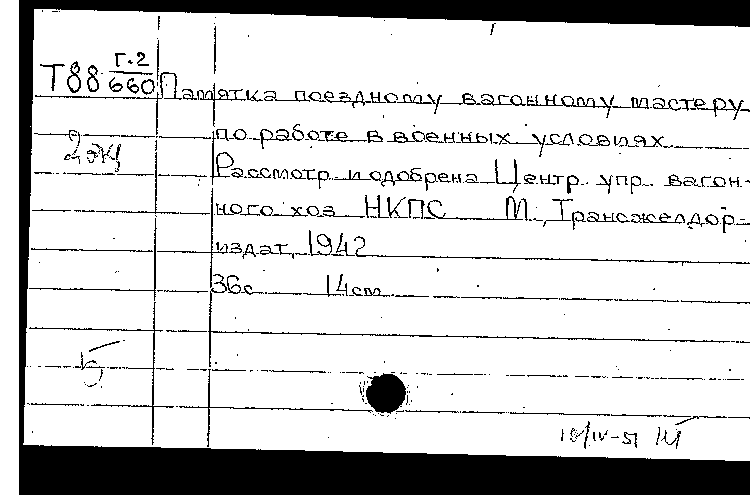 Т88 Г.2/660 Памятка поездному вагонному мастеру
по работе в военных условиях.
2 эк
Рассмотр. и одобрена Центр. упр. вагон-
ного хоз. НКПС М., Трансжелдор-
издат, 1942
36с. 14см.
Б
10/IV-51